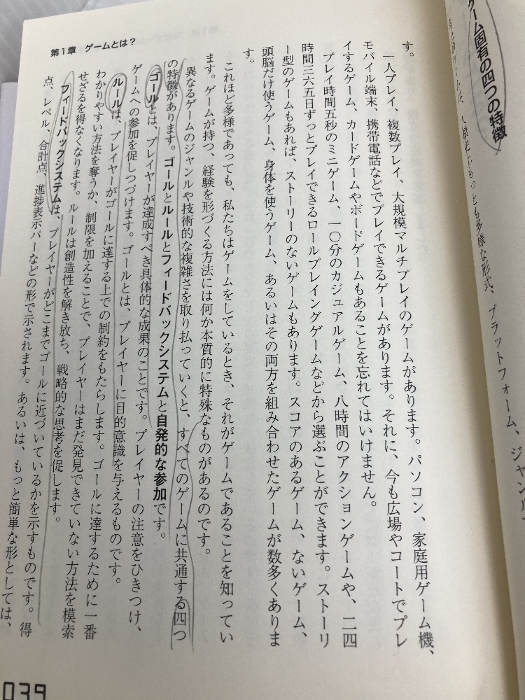 第1章 ゲームとは？
ーム固有の四つの特徴
もっとも多様な形式、プラットフォーム、ジャンル
す。
一人プレイ、複数プレイ、大規模マルチプレイのゲームがあります。パソコン、家庭用ゲーム機、
モバイル端末、携帯電話などでプレイできるゲームがあります。それに、今も広場やコートでプレ
イするゲーム、カードゲームやボードゲームもあることを忘れてはいけません。
プレイ時間五秒のミニゲーム、一〇分のカジュアルゲーム、八時間のアクションゲームや、二四
時間三六五日ずっとプレイできるロールプレイングゲームなどから選ぶことができます。ストーリ
ー型のゲームもあれば、ストーリーのないゲームもあります。スコアのあるゲーム、ないゲーム、
頭脳だけ使うゲーム、身体を使うゲーム、あるいはその両方を組み合わせたゲームが数多くありま
す。
これほど多様であっても、私たちはゲームをしているとき、それがゲームであることを知ってい
ます。ゲームが持つ、経験を形づくる方法には何か本質的に特殊なものがあるのです。
異なるゲームのジャンルや技術的な複雑さを取り払っていくと、すべてのゲームに共通する四つ
の特徴があります。ゴールとルールとフィードバックシステムと自発的な参加です。
ゴールとは、プレイヤーが達成すべき具体的な成果のことです。プレイヤーの注意をひきつけ、
ゲームへの参加を促しつづけます。ゴールとは、プレイヤーに目的意識を与えるものです。
ルールは、プレイヤーがゴールに達する上での制約をもたらします。ゴールに達するために一番
わかりやすい方法を奪うか、制限を加えることで、プレイヤーはまだ発見できていない方法を模索
せざるを得なくなります。ルールは創造性を解き放ち、戦略的な思考を促します。
フィードバックシステムは、プレイヤーがどこまでゴールに近づいているかを示すものです。得
点、レベル、合計点、進捗表示バーなどの形で示されます。あるいは、もっと簡単な形としては、
039